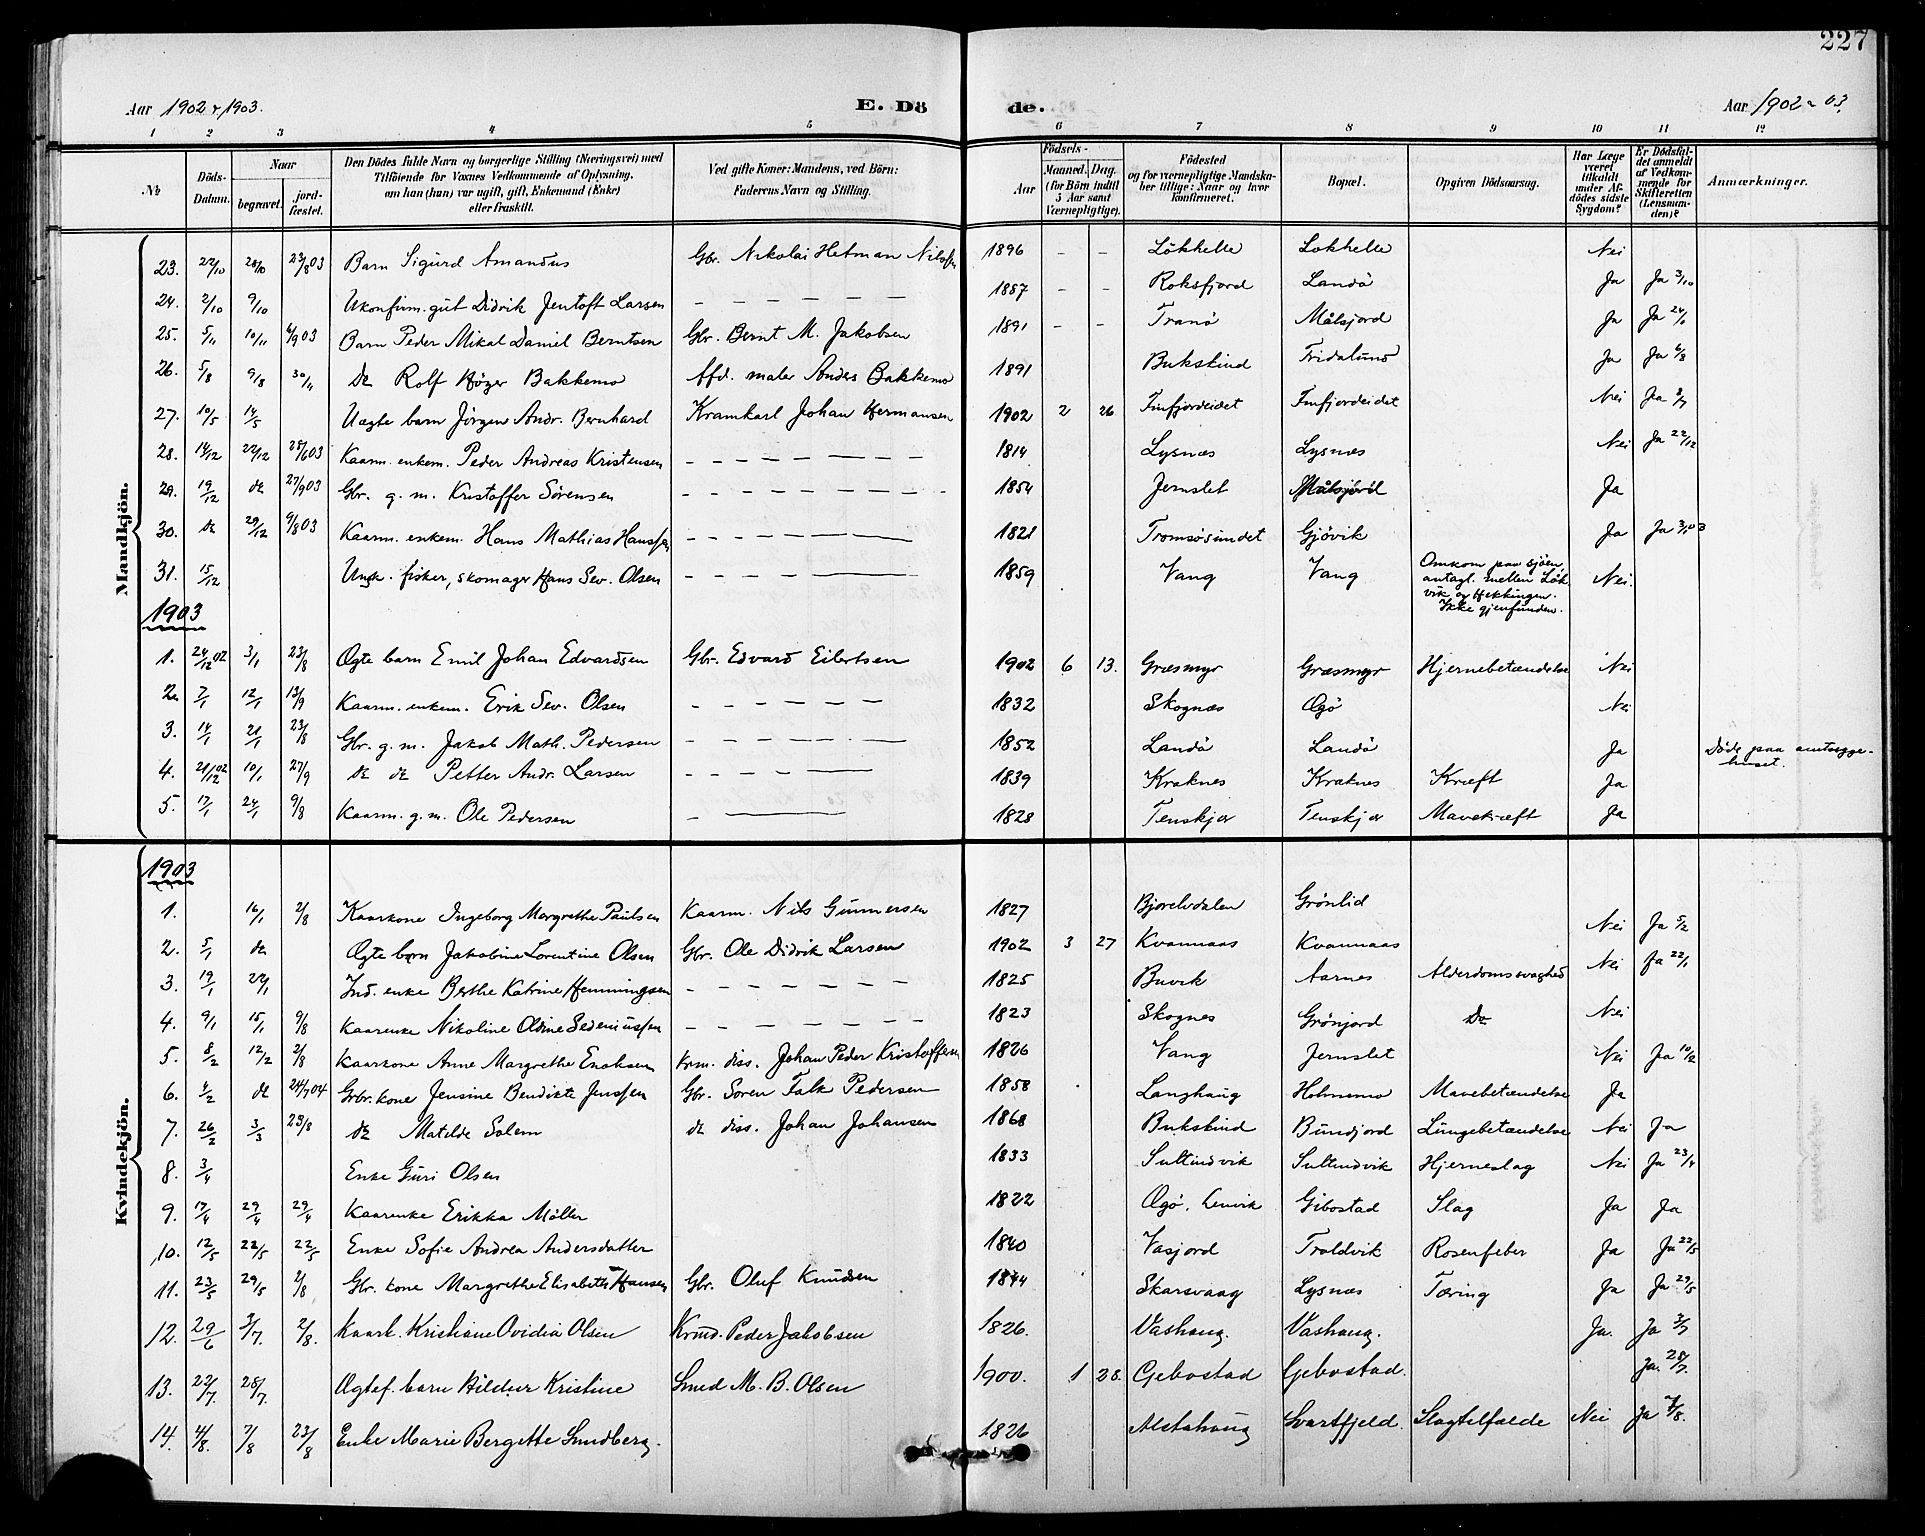 227
Aar 1902 & 1903. E. Dö de. Aar 1902 & 03.
1 2 3 4 5 6 7 8 9 10 11 12
№
Döds-Datum.
Naar
begravet.
jord-fæstet.
Den Dödes fulde Navn og borgerlige Stilling (Næringsvei) med
Tilföiende for Voxnes Vedkommende af Oplysning,
om han (hun) var ugift, gift, Enkemand (Enke)
eller fraskilt.
Ved gifte Koner: Mandens, ved Börn:
Faderens Navn og Stilling.
Födsels-
Aar
Maaned. Dag.
(for Börn indtil
5 Aar samt
Værnepligtige).
Födested
og for værnepligtige Mandska-
ber tillige: Naar og hvor
konfirmeret.
Bopæl.
Opgiven Dödsaarsag.
Har Læge
været
tilkaldt
under Af-
dödes sidste
Sygdom?
Er Dödsfal-
det anmeldt
af Vedkom-
mende for
Skifteretten
(Lensman-
den)?
Anmærkninger.
Mandkjön.
23. 22/10 28/10 23/8 03 Barn Sigurd Amandus Gbr. Nikolai Hetman Nilsen 1896 – – Lökhelle Lokhelle Nei
24. 2/10 9/10 Ukonfirm. gut Didrik Jentoft Larsen – – – – – – 1887 – – Roksfjord Landö Ja Ja 3/10
25. 5/11 10/11 6/9 03 Barn Peder Mikal Daniel Berntsen Gbr. Bernt M. Jakobsen 1891 – – Tranö Målsjord Ja Ja
26. 5/8 9/8 30/11 do Rolf Höger Bakkemo Afd. maler Anders Bakkemo 1891 Bukskind Fridalund Ja Ja 6/8
27. 10/5 14/5 Uægte barn Jörgen Andr. Bernhard Kramkarl Johan Hermansen 1902 2 26 Finfjordeidet Finfjordeidet Nei Ja
28. 14/12 22/12 28/6 03 Kaarm. enkem. Peder Andreas Kristensen – – – – – – 1814 Lysnæs Lysnæs Nei Ja 22/12
29. 19/12 do 27/9 03 Gbr. g. m. Kristoffer Sörensen – – – – – – 1854 Jernslet Målsjord Ja
30. do 29/12 9/8 03 Kaarm. enkem. Hans Mathias Hanssen – – – – – 1821 Tromsösundet Gjövik Ja Ja 3/1 03
31. 15/12 Ungk. fisker, skomager Hans Sev. Olsen – – – – – 1859 Vang Vang Omkom paa sjöen,
antagl. mellem Lök-
vik og Hekkingen.
Ikke gjenfunden. Nei.
1903
1. 24/12 02 3/1 23/8 Ægte barn Emil Johan Edvardsen Gbr. Edvard Eilertsen 1902 6 13. Græsmyr Græsmyr Hjernebetændelse Nei
2. 7/1 12/1 13/9 Kaarm. enkem. Erik Sev. Olsen – – – – – – 1832 Skognæs Ægö Nei
3. 14/1 21/1 23/8 Gbr. g. m. Jakob Math. Pedersen – – – – – 1852 Landö Landö Ja Döde paa amtssyge-
huset.
4. 21/12 02 10/1 27/9 do do Petter Andr. Larsen – – – – 1839 Kraknes Kraknes Kræft Ja
5. 17/1 24/1 9/8 Kaarm. g. m. Ole Pedersen – – 1828 Tenskjær Tenskjær Mavekræft Ja
Kvindekjön.
1903
1. 16/1 2/8 Kaarkone Ingeborg Margrethe Paulsen Kaarm. Nils Gunnersen 1827 Bjorelvdalen Grönlid Nei Ja 5/2
2. 5/1 do Ægte barn Jakobine Lorentine Olsen Gbr. Ole Didrik Larsen 1902 3 27 Kvannaas Kvannaas Nei Ja 22/1
3. 19/1 22/1 Ind. enke Berthe Katrine Hemmingsen – – – – – – 1825 Buvik Aarnes Alderdomssvaghed
4. 9/1 15/1 9/8 Kaarenke Nikoline Oldine Sedeniussen – – – – – – 1823 Skognes Grönjord Do Nei
5. 8/2 12/2 2/8 Kaarkone Anne Margrethe Enoksen Krm. diss. Johan Peder Kristoffersen 1826 Vang Jernslet Nei Ja 10/2
6. 4/2 do 24/7 04 Grbr. kone Jensine Bendikte Jenssen Gbr. Sören Falk Pedersen 1858 Langhaug Holmemo Mavebetændelse Ja
7. 26/2 3/3 23/8 do Matilde Solem do diss. Johan Johansen 1868 Bukskind Bundjord Lungebetændelse Nei Ja
8. 3/4 Enke Guri Olsen 1833 Sultindvik Sultindvik Hjerneslag Nei Ja 23/4
9. 17/4 29/4 29/4 Kaarenke Erikka Möller 1822 Ægö, Lenvik Gibostad Slag Ja Ja
10. 12/5 22/5 22/5 Enke Sofie Andrea Andersdatter 1840 Vasjord Troldvik Rosenfeber Ja Ja 22/5
11. 23/5 29/5 2/8 Gbr. kone Margrethe Elisabeth Hansen Gbr. Oluf Knudsen 1844 Skarsvaag Lysnæs Tæring Ja Ja 29/5
12. 29/6 3/7. 2/8. Kaark. Kristiane Ovidia Olsen Krmd. Peder Jakobsen 1826. Vashaug. Vashaug. Ja. Ja 3/7
13. 22/7. 28/7 Ægtef. barn Hildur Kristine Smed M. B. Olsen 1900. 1 28. Gebostad Gebostad. Ja. 28/7.
14. 4/8. 7/8 23/8 Enke Marie Bergette Sundberg. 1826 Alstahoug Svartfjeld. Slagtilfælde Nei Ja 7/8.